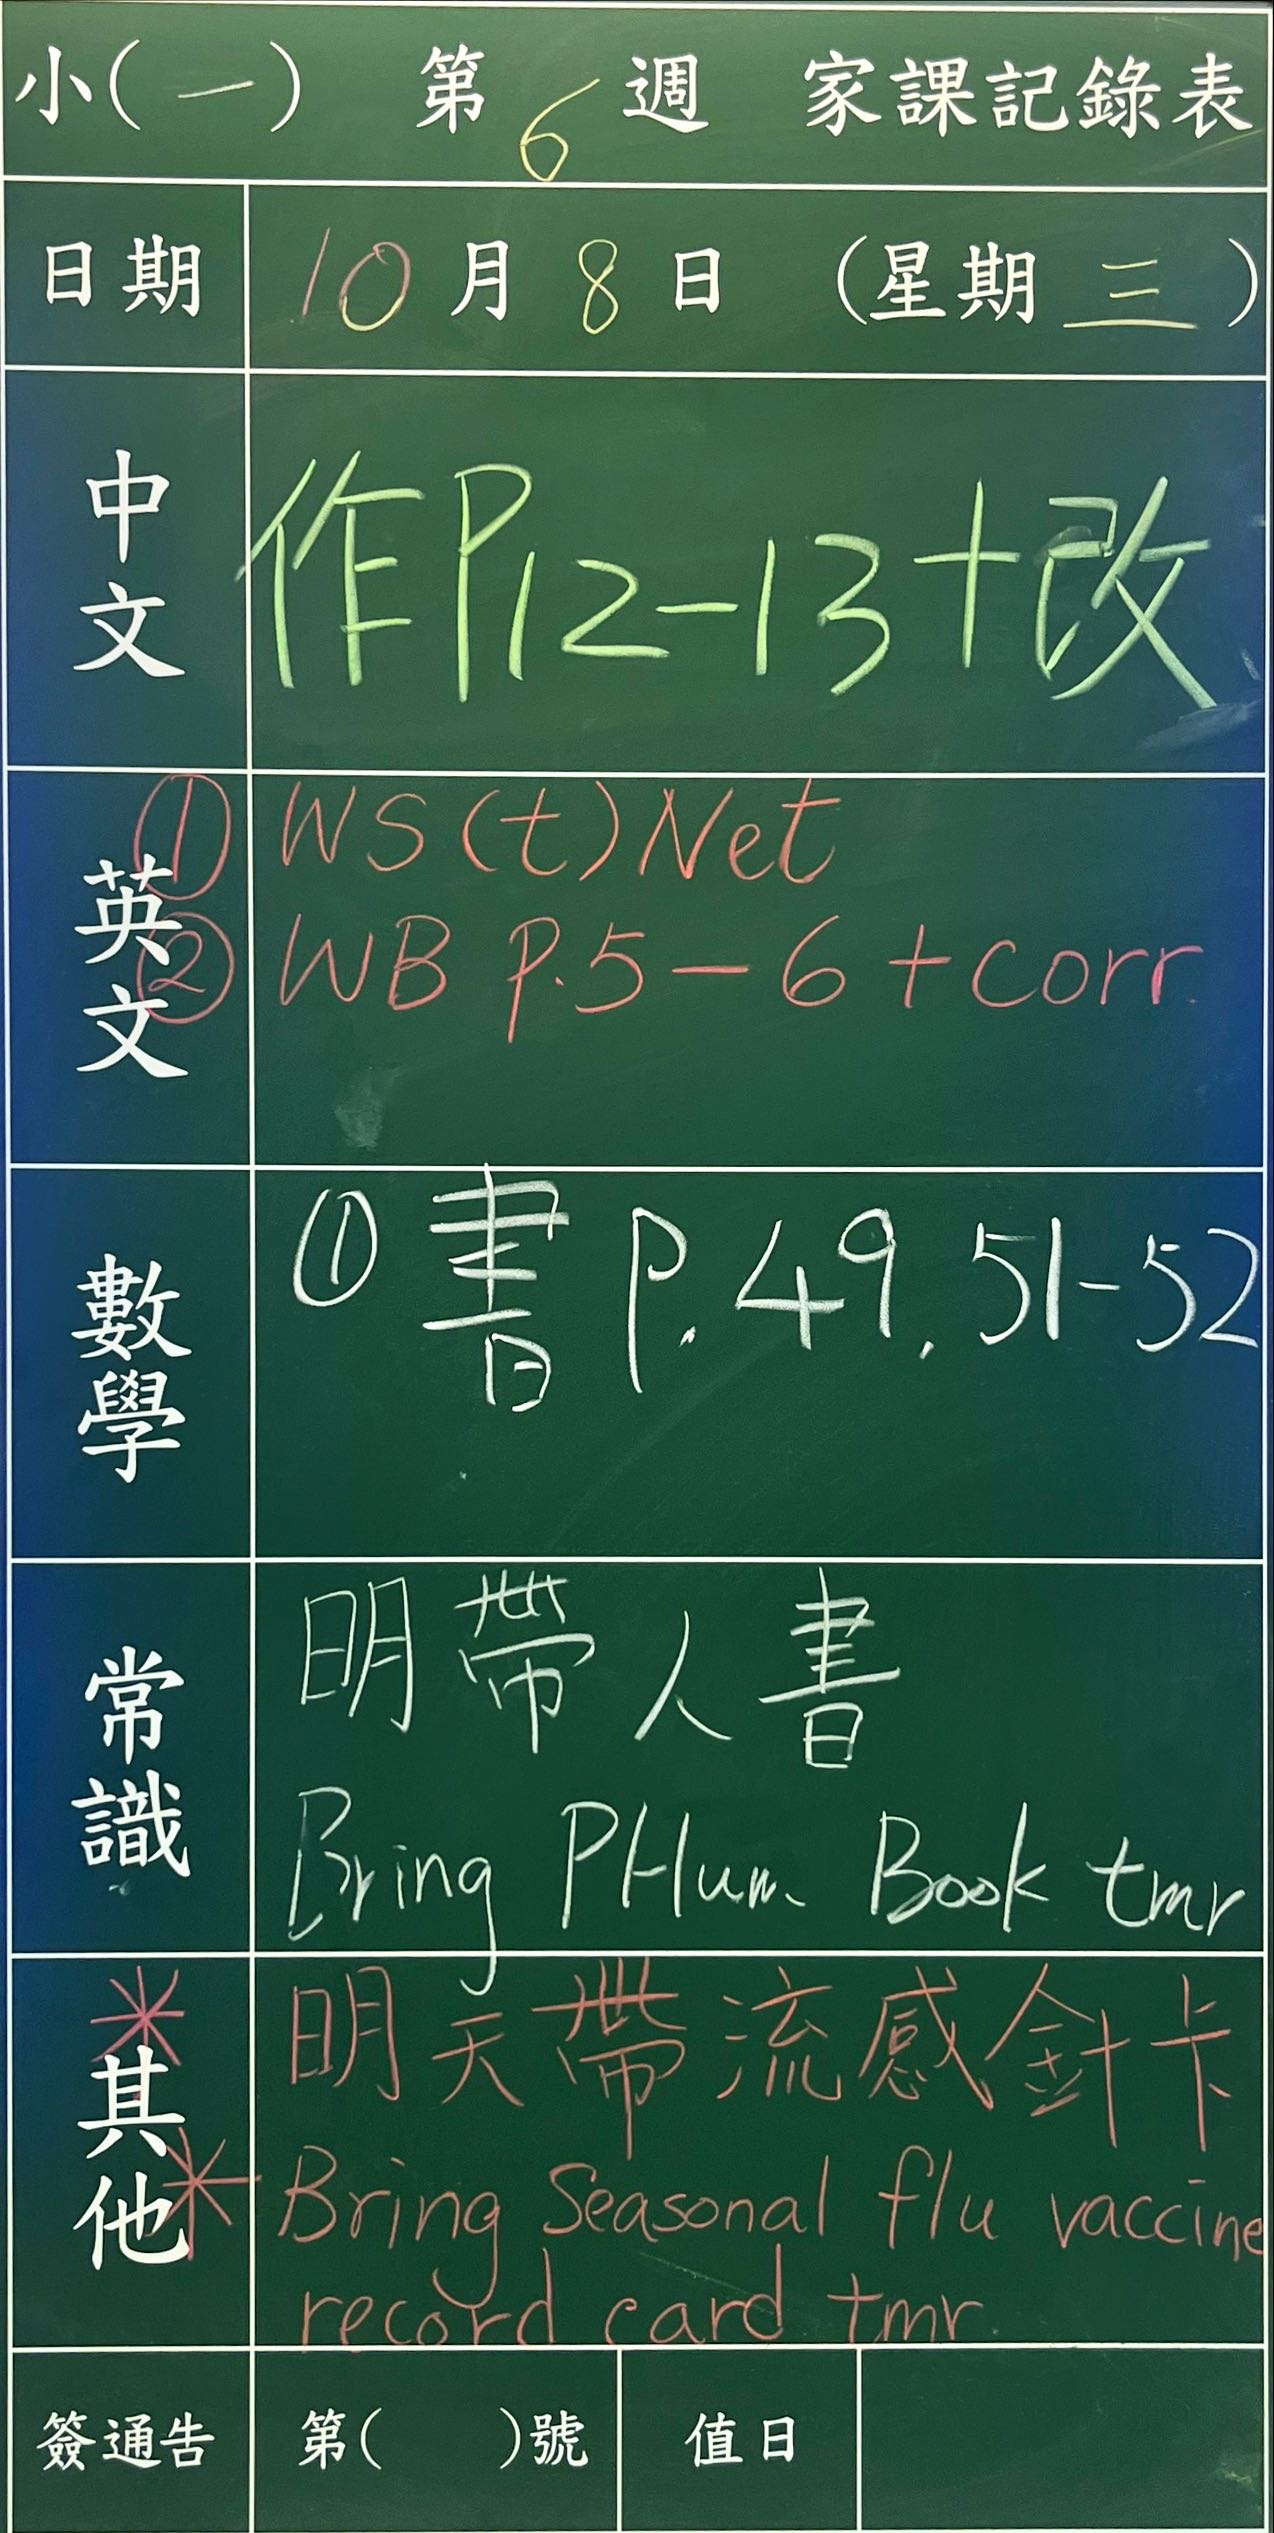 小(一) 第6週 家課記錄表
日期 10月8日 (星期三)
中文 作P12-13+改
英文 ① WS(t)Net
② WB P.5-6+corr.
數學 ① 書 P.49, 51-52
常識 明帶人書
Bring PHum. Book tmr
其他 * 明天帶流感針卡
* Bring Seasonal flu vaccine
record card tmr.
簽通告 第( )號 值日